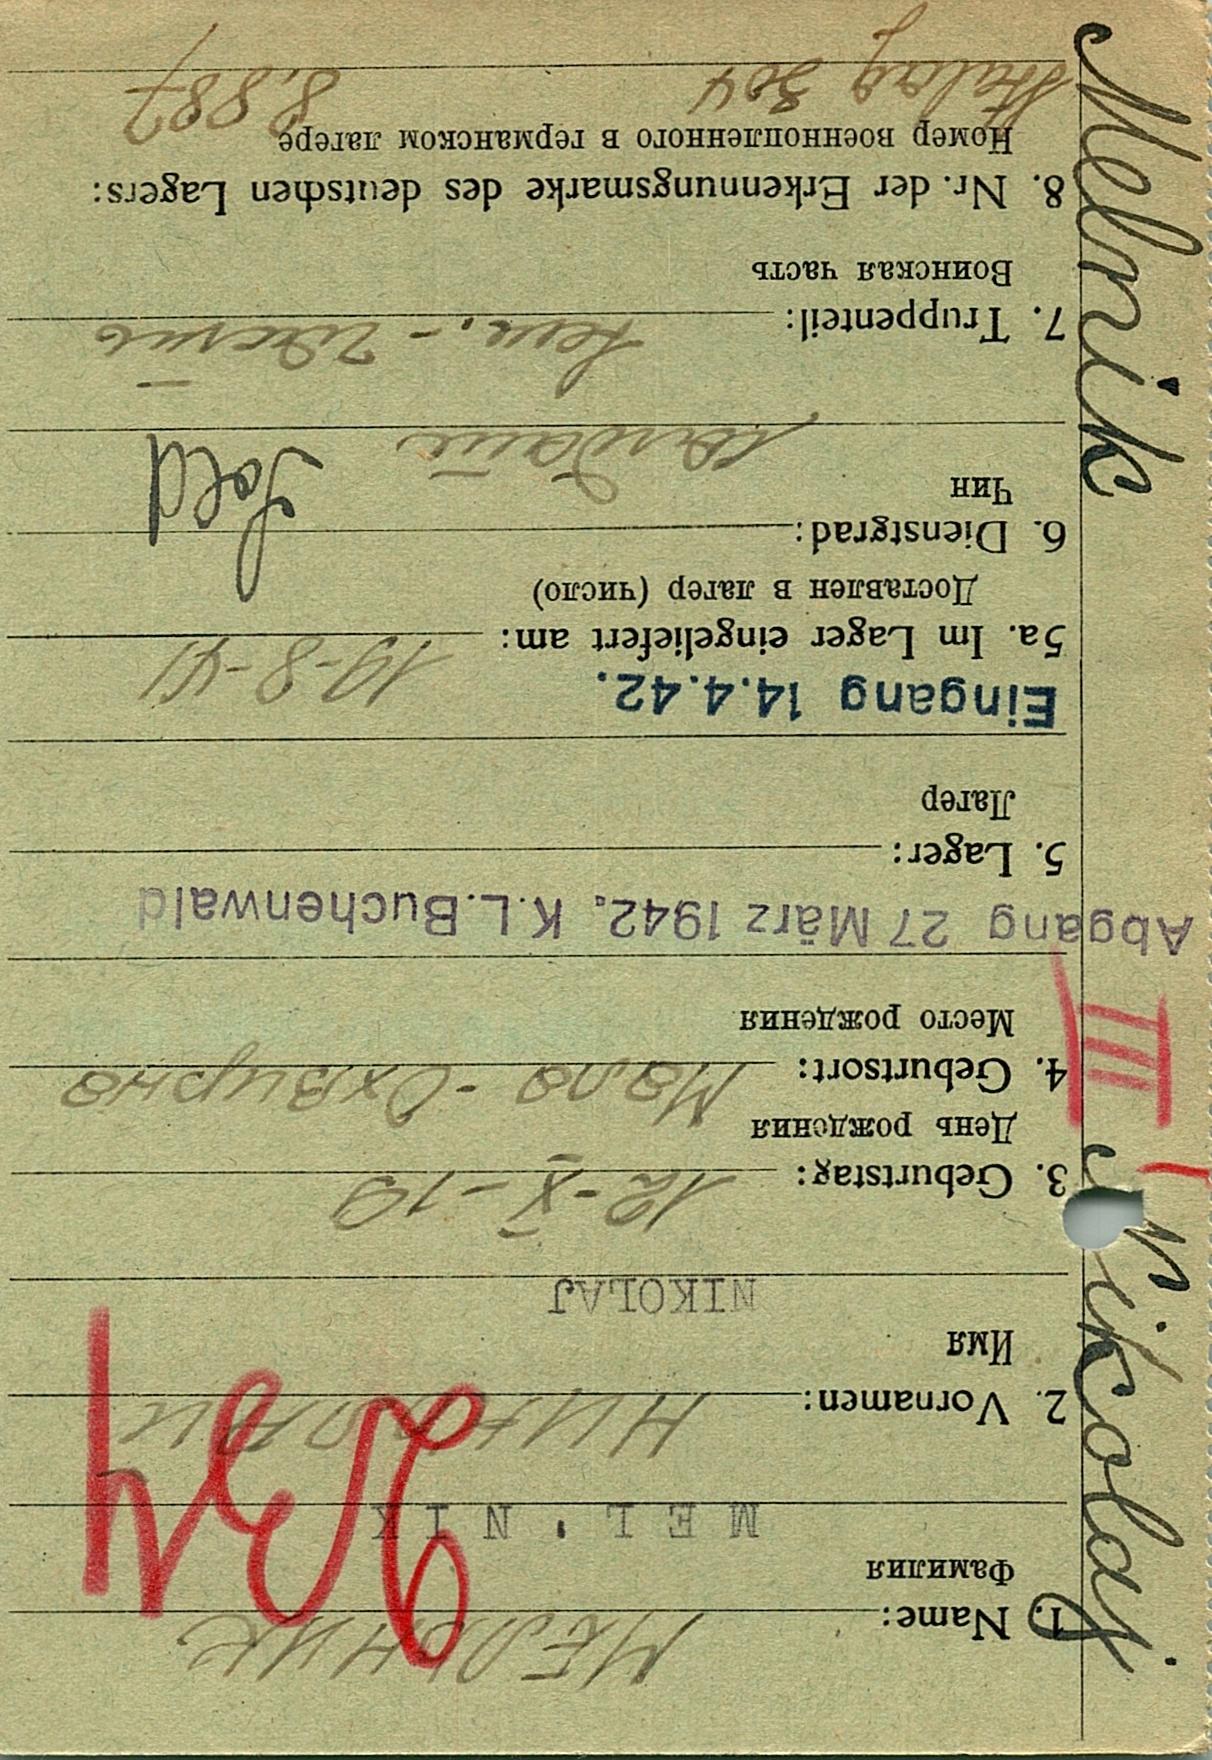 1. Name: МЕЛЬНИК
Фамилия
MEL'NIK
2. Vornamen: НИКОЛАЙ
Имя
NIKOLAJ
3. Geburtstag: 12-X-19
День рождения
4. Geburtsort: Мала-
Место рождения
III
Abgang 27 März 1942. K.L.Buchenwald
5. Lager:
Лагер
Eingang 14.4.42.
5a. Im Lager eingeliefert am: 19-8-41
Доставлен в лагер (число)
6. Dienstgrad: Sold
Чин
7. Truppenteil:
Воинская часть
8. Nr. der Erkennungsmarke des deutschen Lagers:
Номер военнопленного в германском лагере
Stalag 304 8.887
Melnik Nikolaj